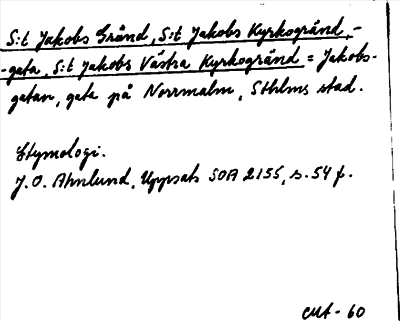 S:t Jakobs Gränd, S:t Jakobs Kyrkogränd, -
-gata, S:t Jakobs Västra Kyrkogränd = Jakobs-
gatan, gata på Norrmalm, Sthlms stad.
Etymologi.
J.O. Ahnlund, Uppsats SOA 2155, s. 54 f.
- 60